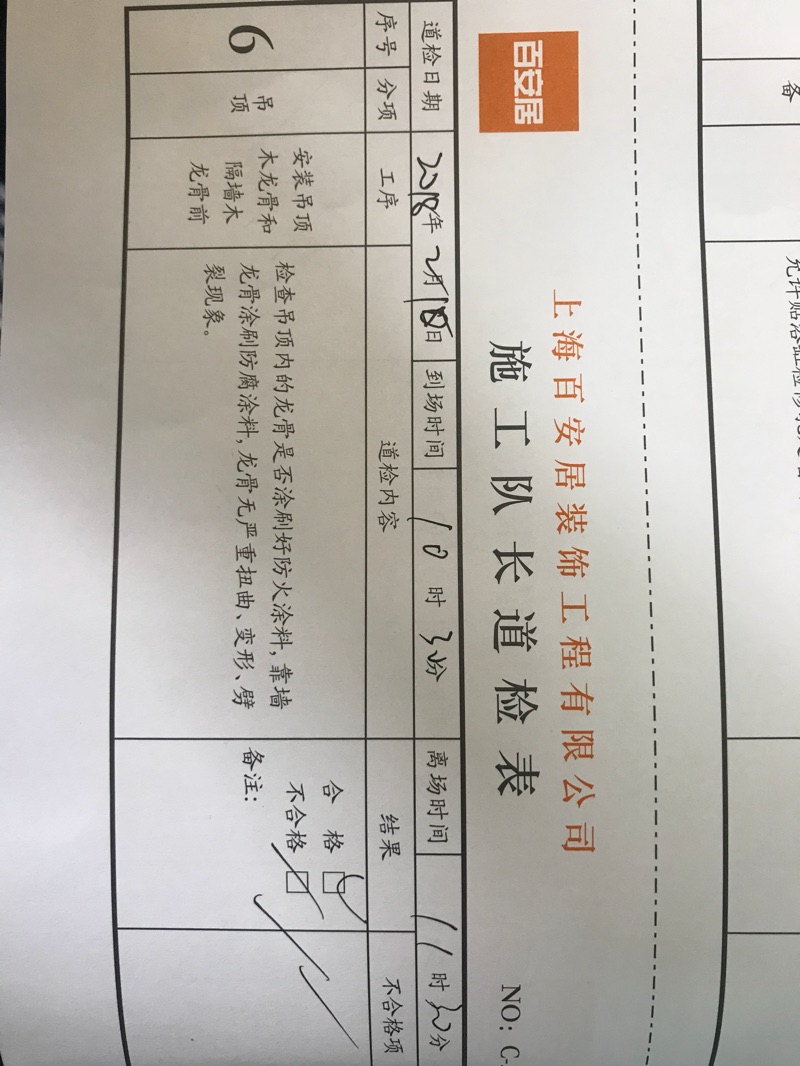 备
允许贴浴缸检修孔
百安居
上海百安居装饰工程有限公司
施工队长道检表
NO: C-
道检日期 2018年2月18日 到场时间 10时30分 离场时间 11时30分
序号 分项 工序 道检内容 结果 不合格项
6
吊
顶
安装吊顶
木龙骨和
隔墙木
龙骨前
检查吊顶内的龙骨是否涂刷好防火涂料,靠墙
龙骨涂刷防腐涂料,龙骨无严重扭曲、变形、劈
裂现象。
合 格 □
不合格 □
备注: